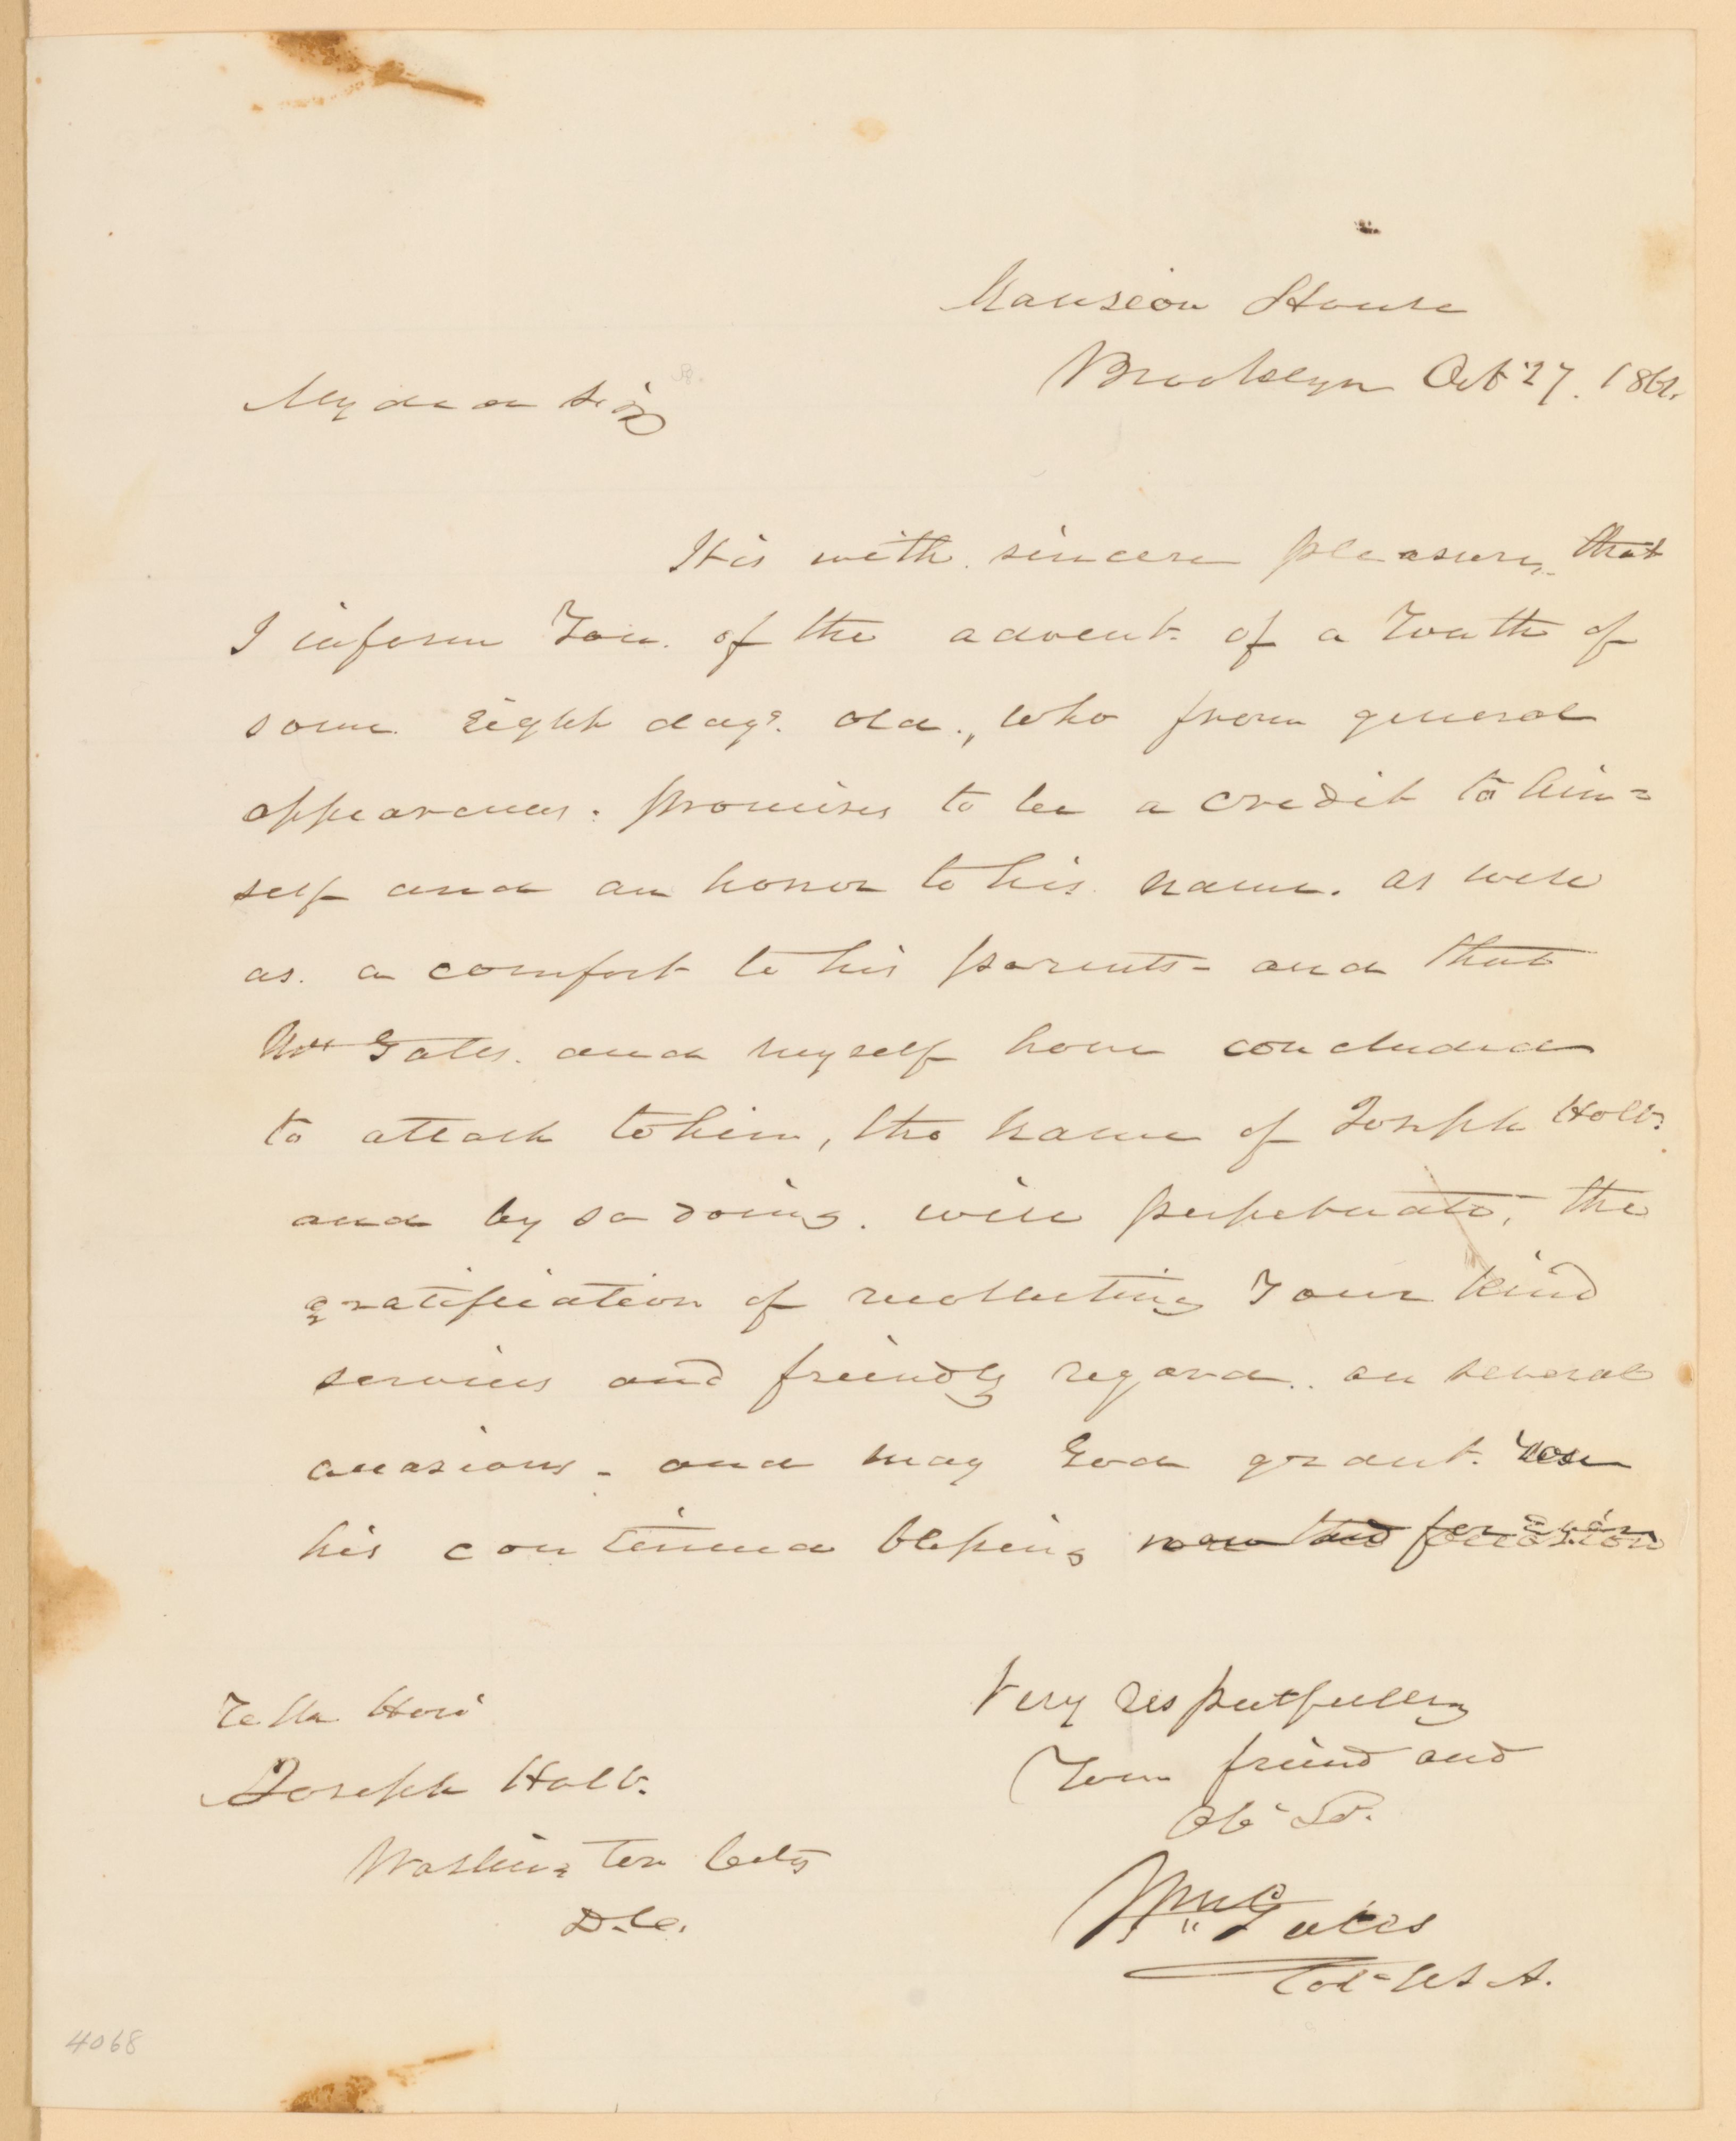 Mansion House
Brooklyn Oct 27. 1862.
My dear Sir
It is with sincere pleasure, that
I inform You. of the advent of a Youth of
some eight days. old., who from general
appearances. promises to be a credit to him=
self and an honor to his name. as well
as. a comfort to his parents - and that
Mrs Gates. and myself have concluded
to attach to him, the name of Joseph Holt.
and by so doing. will perpetuate, the
gratification of recollecting Your kind
services and friendly regard.. on several
occasions - and may God grant. You
his continued blessing now and forever
Very respectfully
Your friend and
Ob St.
Wm Gates
Col - U S A.
To the Hon
Joseph Holt.
Washington City
D.C.
4068